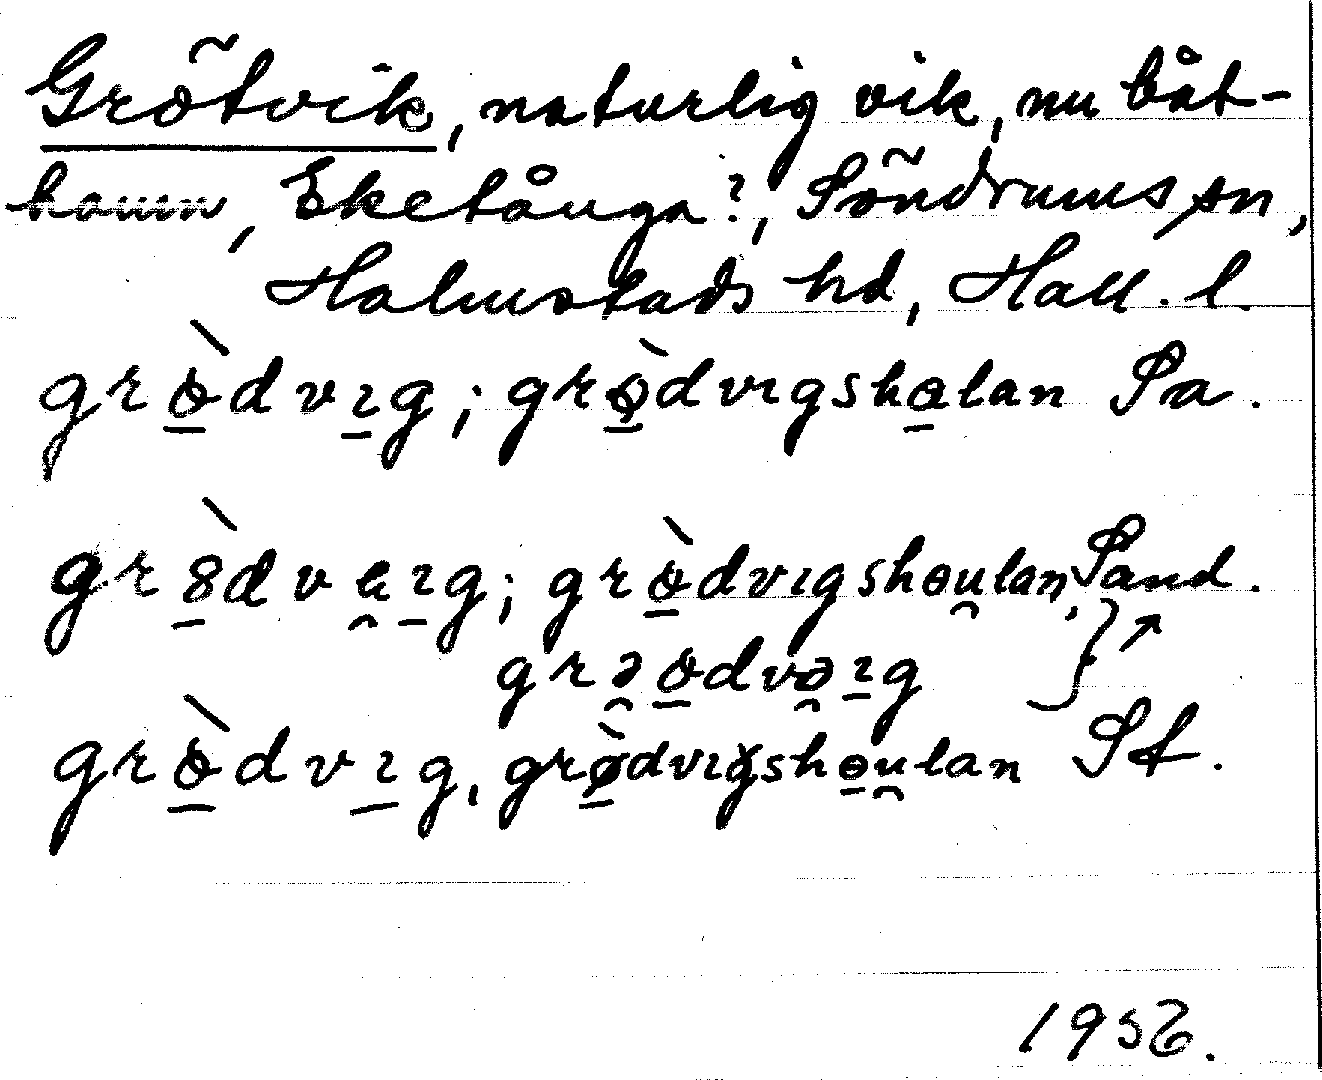 Grötvik, naturlig vik, nu båt-
hamn, Eketånga?, Söndrums sn,
Halmstads hd, Hall. l.
grò̱dvı̱g; grø̱̀dvıgsha̱lan Sa.
grȣ̱̀dve̯ı̱g; grò̱dvıgshou̯lan, Sand.
grə̯o̱dvə̯ı̱g } ↗
grò̱dvı̱g, grø̱̀dvıgsho̱u̯lan St.
1956.